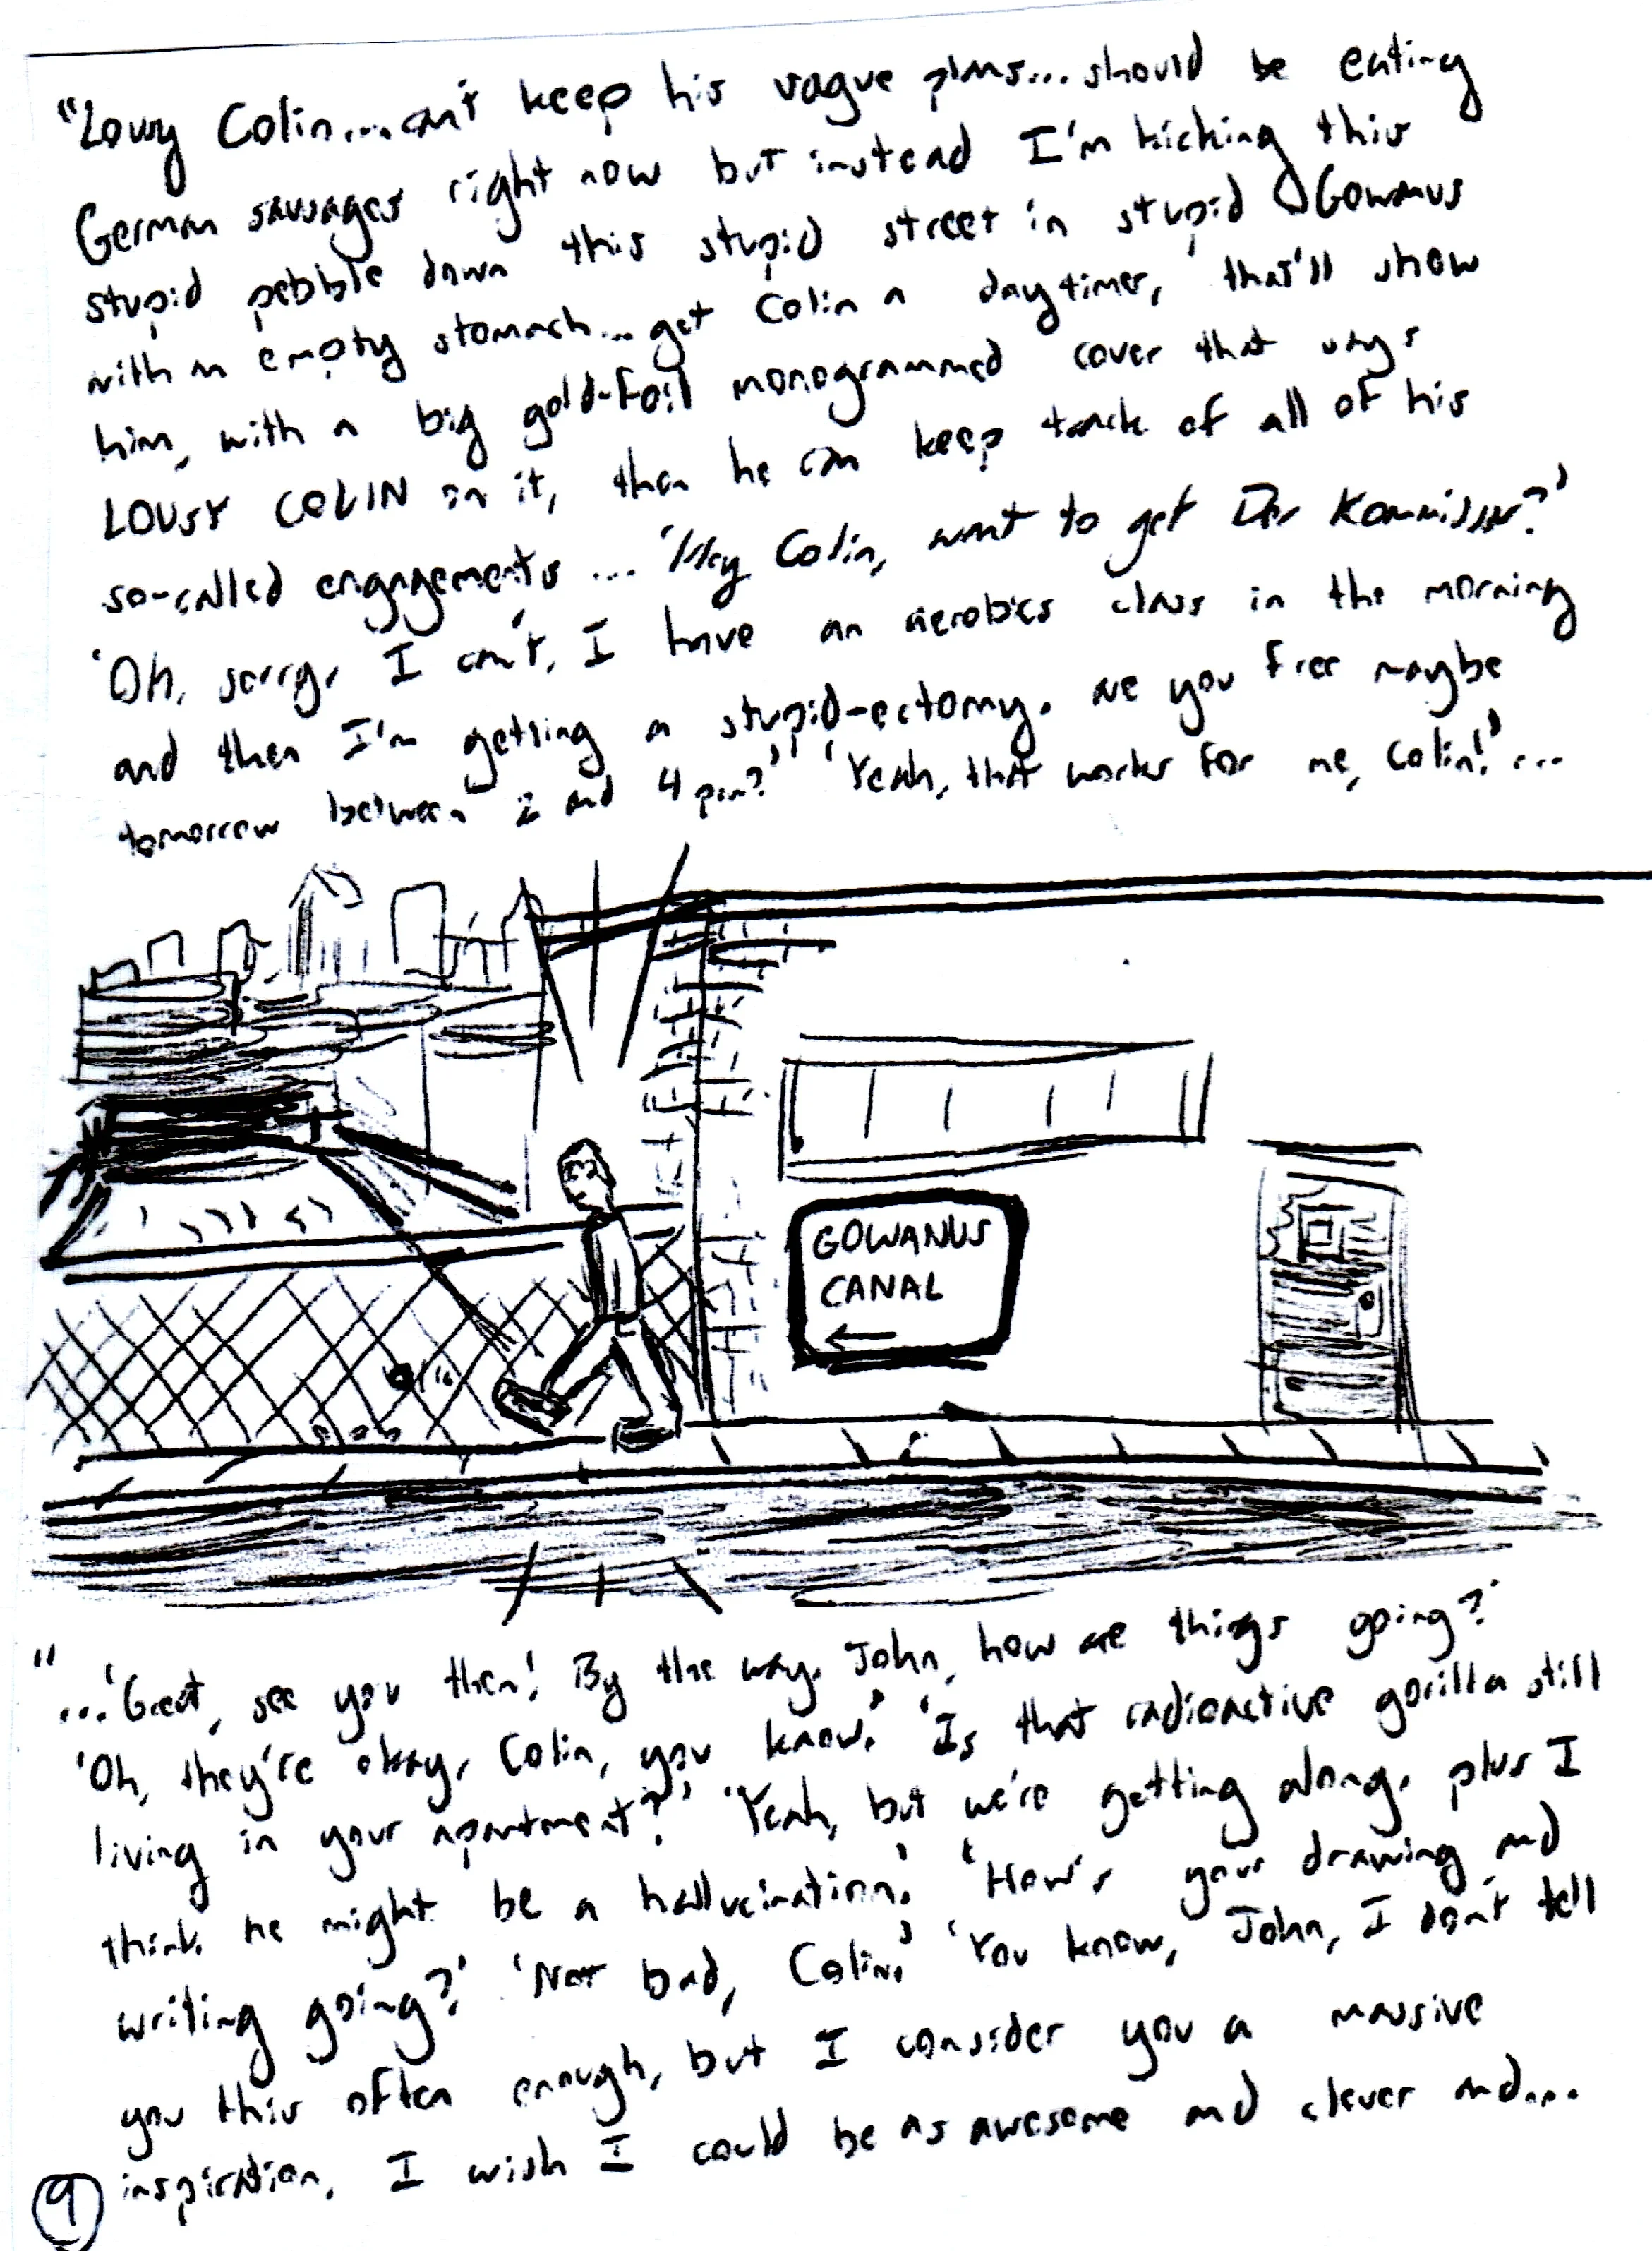 "Lousy Colin... can't keep his vague plans... should be eating
German sausages right now but instead I'm kicking this
stupid pebble down this stupid street in stupid Gowanus
with an empty stomach... get Colin a daytimer, that'll show
him, with a big gold-foil monogrammed cover that says
LOUSY COLIN on it, then he can keep track of all of his
so-called engagements... 'Hey Colin, want to get Der Kommissar?'
'Oh, sorry, I can't, I have an aerobics class in the morning
and then I'm getting a stupid-ectomy. Are you free maybe
tomorrow between 2 and 4 pm?' 'Yeah, that works for me, Colin!'...
GOWANUS
CANAL
←
"...'Great, see you then! By the way, John, how are things going?'
'Oh, they're okay, Colin, you know.' 'Is that radioactive gorilla still
living in your apartment?' 'Yeah, but we're getting along, plus I
think he might be a hallucination.' 'How's your drawing and
writing going?' 'Not bad, Colin.' 'You know, John, I don't tell
you this often enough, but I consider you a massive
inspiration. I wish I could be as awesome and clever and...
9